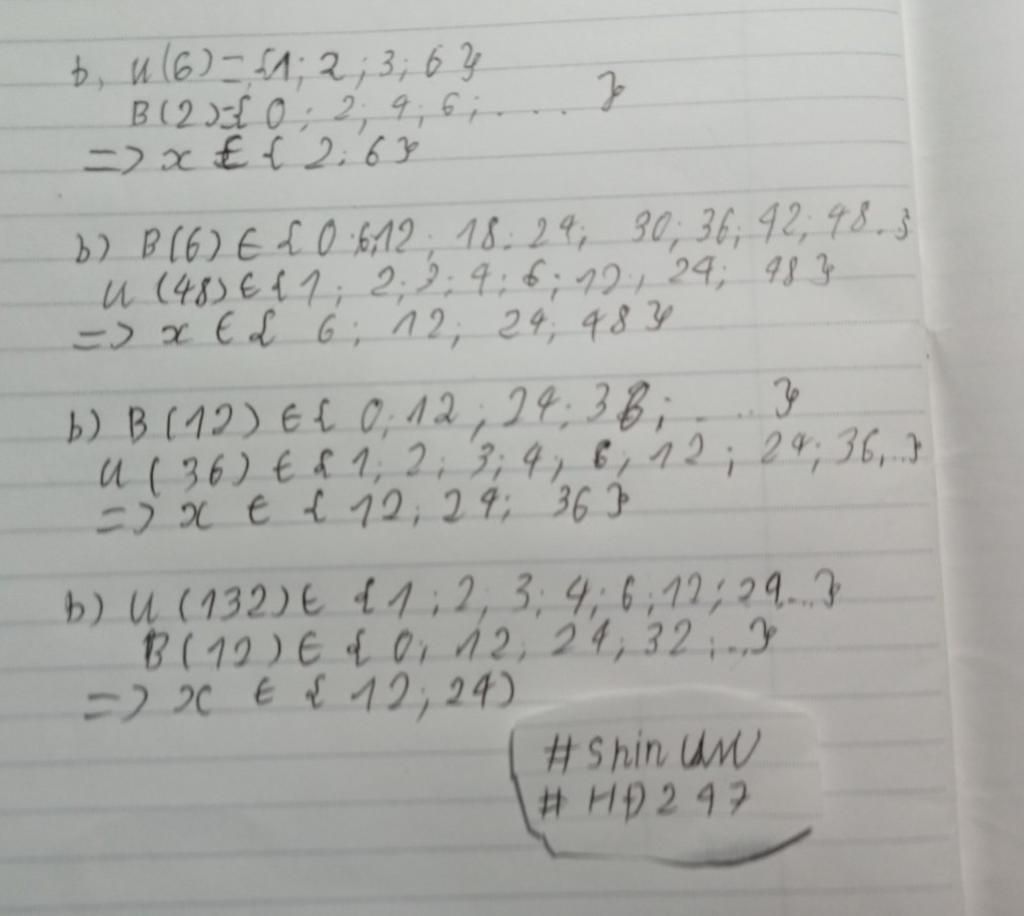 b, U(6)={1; 2; 3; 6}
B(2)={ 0; 2; 4; 6; .... }
=> x ∈ { 2; 6}
b) B(6) ∈ { 0;6;12; 18; 24; 30; 36; 42; 48..}
U (48) ∈ {1; 2; 3; 4; 6; 12; 24; 48}
=> x ∈ { 6; 12; 24; 48}
b) B(12) ∈ { 0; 12; 24; 36; .... }
U (36) ∈ {1; 2; 3; 4; 6; 12; 24; 36,..}
=> x ∈ { 12; 24; 36}
b) U (132) ∈ {1; 2; 3; 4; 6; 12; 24...}
B(12) ∈ { 0; 12; 24; 32; ..}
=> x ∈ { 12; 24)
#Shin
#HĐ247